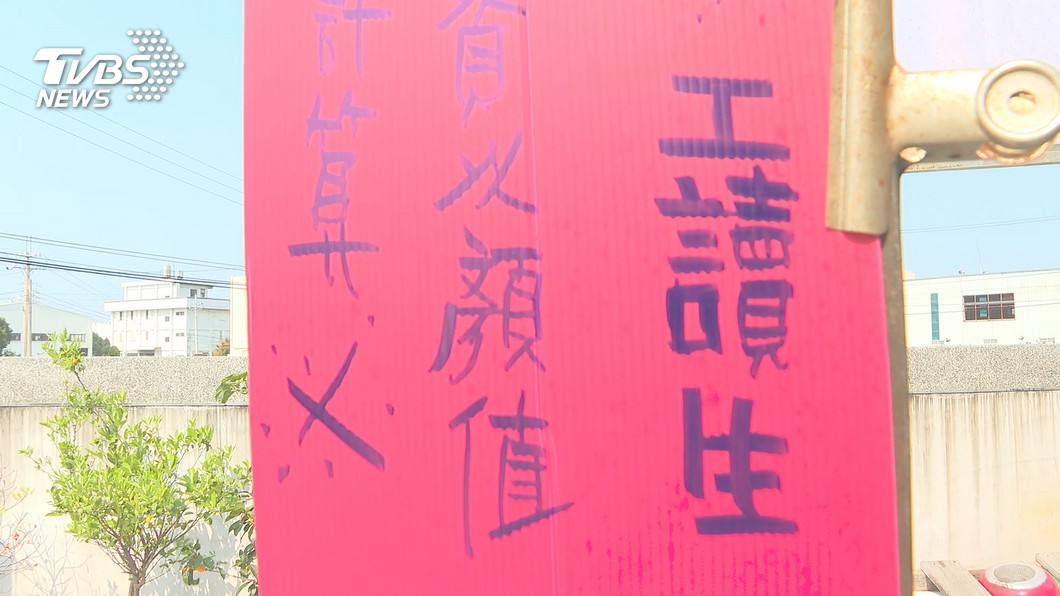 TVBS
NEWS
工讀生
資以顏值
計算